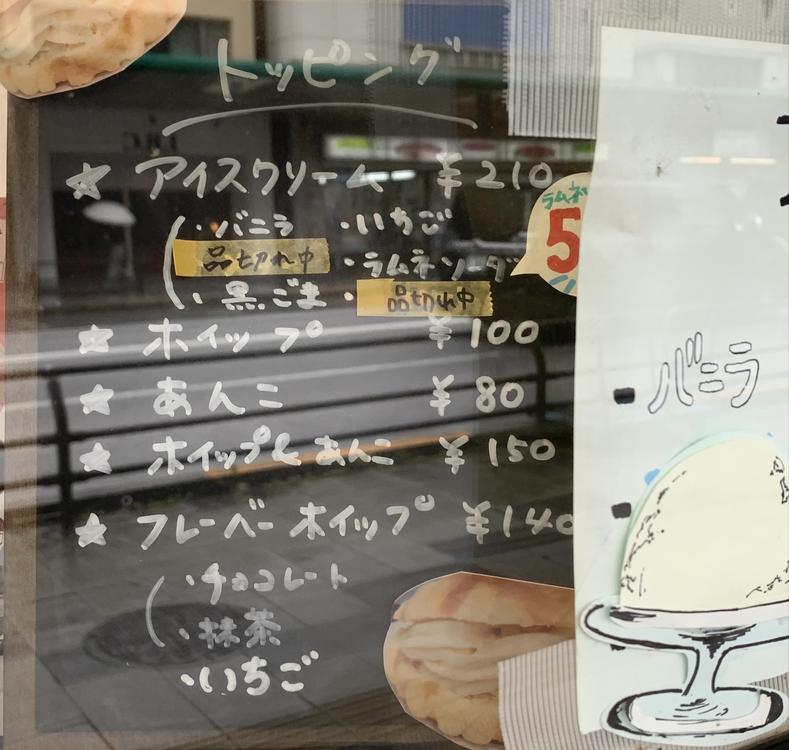 トッピング
☆ アイスクリーム ¥210
(・バニラ ・いちご
品切れ中 ・ラムネソーダ
・黒ごま ・品切れ中
☆ ホイップ ¥100
☆ あんこ ¥80
☆ ホイップ&あんこ ¥150
☆ フレーバーホイップ ¥140
(・チョコレート
・抹茶
・いちご
ラムネ
5
バニラ